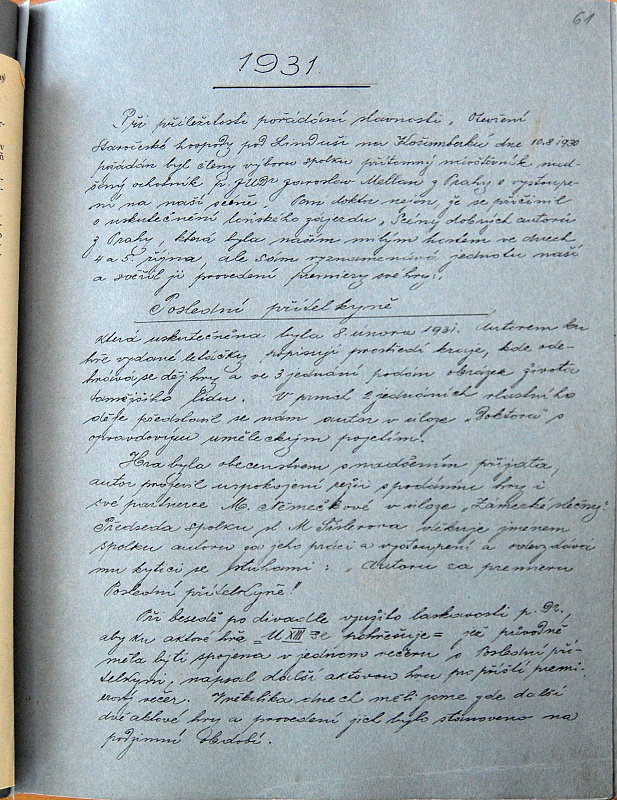 61
1931.
Při příležitosti pořádání slavnosti „Otevření
Staročeské hospody pod Sinduší na Košumberku dne 10.8.1930
požádán byl členy výboru spolku přítomný mimořádník nad-
šený ochotník p. JUDr Jaroslav Mellan z Prahy o vystoupe-
ní na naší scéně. Pan doktor nejen, že se přičinil
o uskutečnění loňského zájezdu „Scény dobrých autorů
z Prahy, která byla naším milým hostem ve dnech
4 a 5. října, ale sám vyznamenává jednotu naši
a svěřil jí provedení premiery své hry:
Poslední přítelkyně
která uskutečněna byla 8. února 1931. Autorem ku
hře vydané letáčky popisují prostředí kraje, kde ode-
hrává se děj hry a ve 3 jednání podán obrázek života
tamějšího lidu. V prvních 2 jednáních vlastního
díla představil se nám autor v úloze „Doktora" s
opravdovým uměleckým pojetím.
Hra byla obecenstvem s nadšením přijata,
autor projevil uspokojení režii s podáním hry i
své partnerce M. Němečkové v úloze „Zámecké slečny".
Předseda spolku sl. M. děkuje jmenem
spolku autoru za jeho práci a vystoupení a odevzdává
mu kytici se stuhami: „Autoru za premieru
Poslední přítelkyně!"
Při besedě po divadle využito laskavosti p. Dr.,
aby ku aktové hře „U XIII se pohřešuje" jež původně
měla býti spojena v jednom večeru s Poslední pří-
telkyní, napsal další aktovou hru pro příští premi-
erový večer. V několika dnech měli jsme zde další
dvě aktové hry a provedení jich bylo stanoveno na
podzimní období.